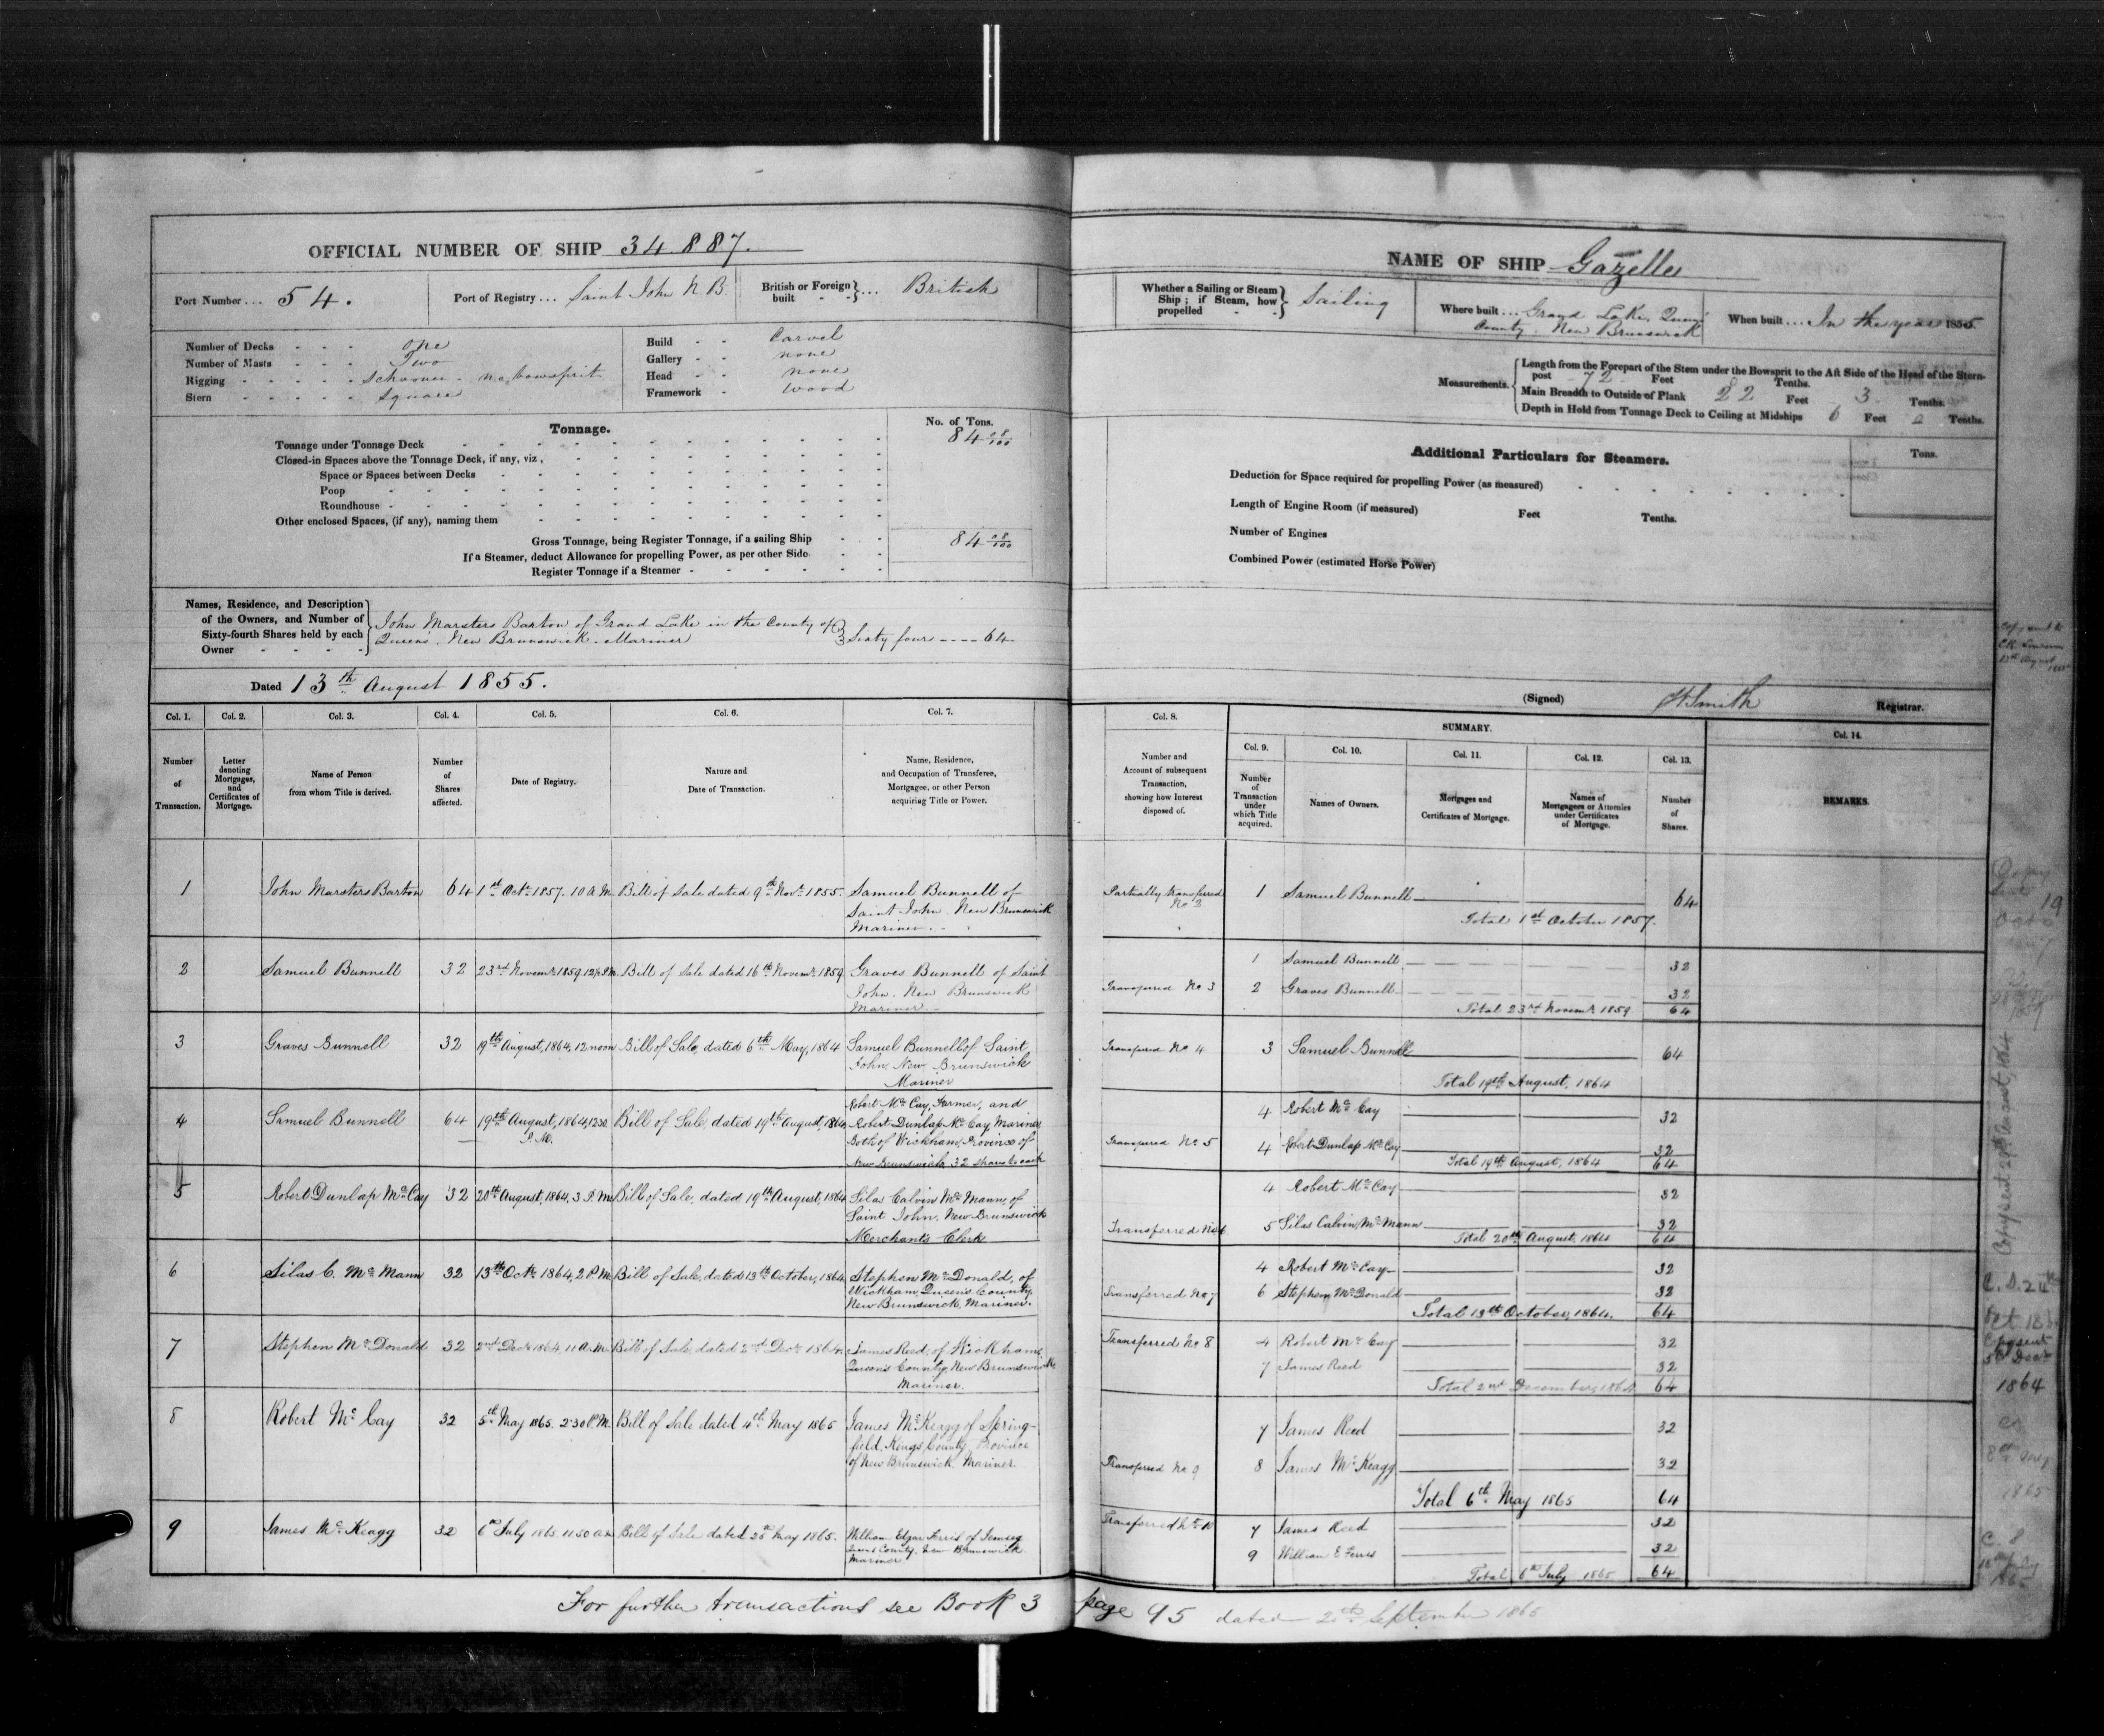 OFFICIAL NUMBER OF SHIP 34.887.
Port Number ... 54.
Port of Registry ... Saint John N.B.
British or Foreign built } ... British
Number of Decks - - - one
Number of Masts - - - Two
Rigging - - - - - Schooner - no bowsprit
Stern - - - - - Square
Build - - Carvel
Gallery - - none
Head - - none
Framework - Wood
Tonnage.
No. of Tons.
Tonnage under Tonnage Deck 84 08/100
Closed-in Spaces above the Tonnage Deck, if any, viz,
Space or Spaces between Decks
Poop
Roundhouse
Other enclosed Spaces, (if any), naming them
Gross Tonnage, being Register Tonnage, if a sailing Ship 84 08/100
If a Steamer, deduct Allowance for propelling Power, as per other Side
Register Tonnage if a Steamer
Names, Residence, and Description
of the Owners, and Number of
Sixty-fourth Shares held by each
Owner
John Marsters Barton of Grand Lake in the County of
Queens. New Brunswick. Mariner } Sixty four ---- 64
Dated 13th August 1855.
Col. 1. Col. 2. Col. 3. Col. 4. Col. 5. Col. 6. Col. 7.
Number of Transaction.
Letter denoting Mortgages, and Certificates of Mortgage.
Name of Person from whom Title is derived.
Number of Shares affected.
Date of Registry.
Nature and Date of Transaction.
Name, Residence, and Occupation of Transferee, Mortgagee, or other Person acquiring Title or Power.
1 John Marsters Barton 64 1st Octr 1857. 10 A.M. Bill of Sale dated 9th Novr 1855. Samuel Bunnell of
Saint John. New Brunswick
Mariner.
2 Samuel Bunnell 32 23rd Novemr 1859, Bill of Sale dated 16th Novemr 1859 Graves Bunnell of Saint
John. New Brunswick
Mariner
3 Graves Bunnell 32 19th August, 1864, 12 noon Bill of Sale, dated 6th May, 1864 Samuel Bunnell of Saint
John, New Brunswick
Mariner
4 Samuel Bunnell 64 19th August, 1864, 12.30 P.M. Bill of Sale, dated 19th August, 1864, Robert McCay, Farmer, and
Robert Dunlap McCay Mariner
Both of Wickham, Province of
New Brunswick 32 Shares to each
5 Robert Dunlap McCay 32 20th August, 1864, 3 P.M. Bill of Sale, dated 19th August, 1864 Silas Calvin McMann, of
Saint John, New Brunswick
Merchants Clerk
6 Silas C. McMann 32 13th Octr 1864, 2 P.M. Bill of Sale, dated 13th October, 1864 Stephen McDonald, of
Wickham, Queen's County,
New Brunswick, Mariner.
7 Stephen McDonald 32 2nd Decr 1864, 11 A.M. Bill of Sale, dated 2nd Decr 1864. James Reed, of Wickham,
Queen's County, New Brunswick
Mariner.
8 Robert McCay 32 5th May 1865. 2.30 P.M. Bill of Sale dated 4th May 1865 James McKeagg of Spring-
field, Kings County, Province
of New Brunswick. Mariner.
9 James McKeagg 32 6th July 1865 11.50 am Bill of Sale dated 25th May 1865. William Edgar Ferris of Jemseg
Queens County. New Brunswick
Mariner
For further transactions see Book 3
NAME OF SHIP Gazelle
Whether a Sailing or Steam Ship; if Steam, how propelled } Sailing
Where built ... Grand Lake, Queens
County. New Brunswick
When built ... In the year 1855.
Measurements.
Length from the Forepart of the Stem under the Bowsprit to the Aft Side of the Head of the Stern-
post 72 Feet Tenths.
Main Breadth to Outside of Plank 22 Feet 3 Tenths.
Depth in Hold from Tonnage Deck to Ceiling at Midships 6 Feet Tenths.
Additional Particulars for Steamers.
Tons.
Deduction for Space required for propelling Power (as measured)
Length of Engine Room (if measured) Feet Tenths.
Number of Engines
Combined Power (estimated Horse Power)
(Signed) Smith Registrar.
Col. 8.
SUMMARY.
Col. 9. Col. 10. Col. 11. Col. 12. Col. 13. Col. 14.
Number and Account of subsequent Transaction, showing how Interest disposed of.
Number of Transaction under which Title acquired.
Names of Owners.
Mortgages and Certificates of Mortgage.
Names of Mortgagees or Attornies under Certificates of Mortgage.
Number of Shares.
REMARKS.
Partially transferred 1 Samuel Bunnell 64
Total 1st October 1857.
1 Samuel Bunnell 32
Transferred No 3 2 Graves Bunnell 32
Total 23rd Novemr 1859 64
Transferred No 4 3 Samuel Bunnell 64
Total 19th August, 1864
4 Robert McCay 32
Transferred No 5 4 Robert Dunlap McCay 32
Total 19th August, 1864 64
4 Robert McCay 32
Transferred No 6 5 Silas Calvin McMann 32
Total 20th August, 1864 64
4 Robert McCay 32
Transferred No 7 6 Stephen McDonald 32
Total 13th October, 1864. 64
Transferred No 8 4 Robert McCay 32
7 James Reed 32
Total 2nd December, 1864 64
7 James Reed 32
Transferred No 9 8 James McKeagg 32
Total 6th May 1865 64
Transferred No 10 7 James Reed 32
9 William E Ferris 32
Total 6th July 1865 64
page 95 dated 20th September 1865
Copy sent 29th August, 1864
Copy sent
5th Decr
1864